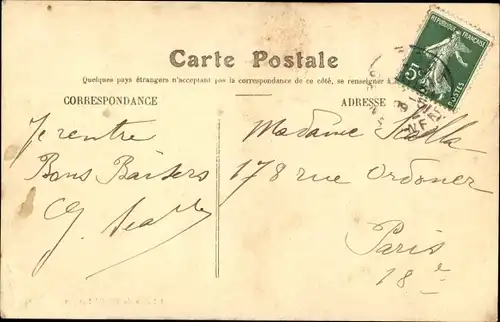 RÉPUBLIQUE FRANÇAISE
5c
POSTES
Carte Postale
Quelques pays étrangers n'acceptant pas la correspondance de ce côté, se renseigner à
CORRESPONDANCE
ADRESSE
Je rentre
Bons Baisers
Madame
178 rue Ordoner
Paris
18e